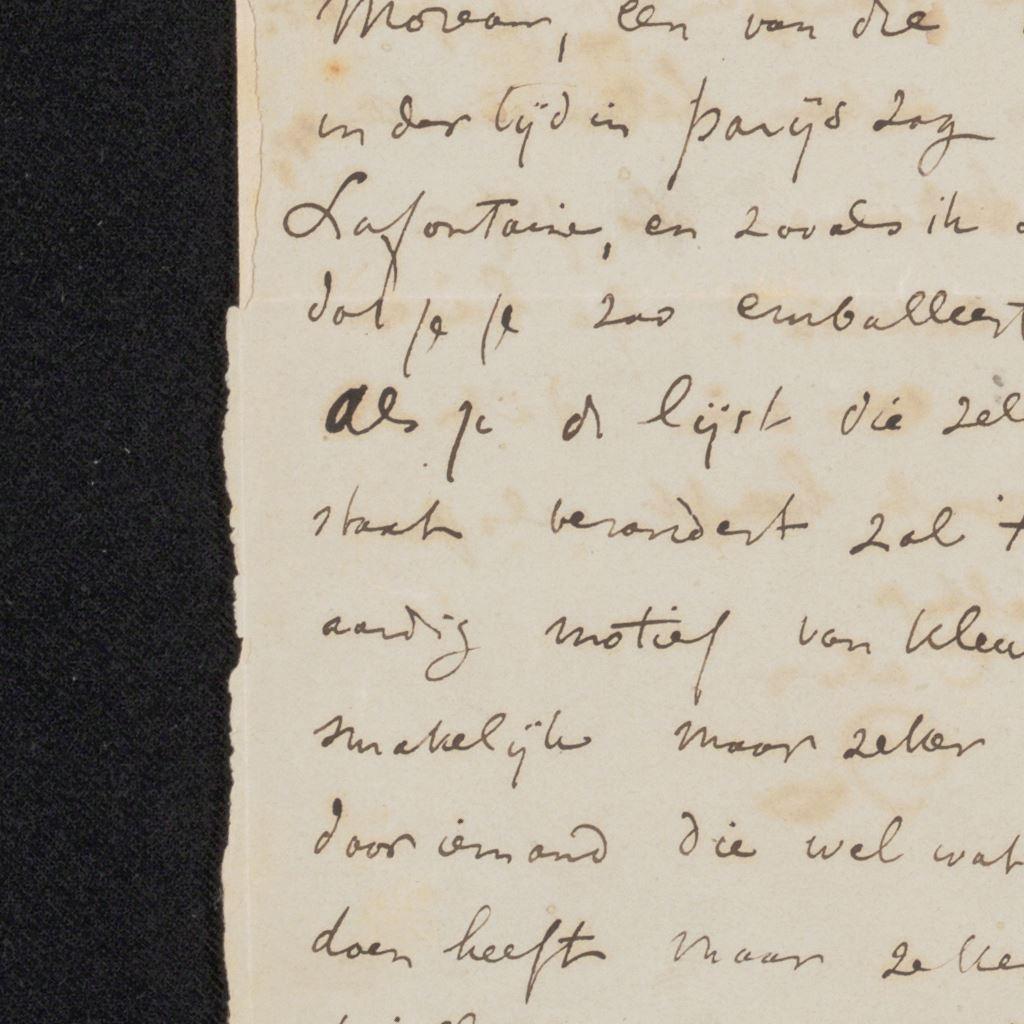 Moreau, een van die
indertijd in parijs zag
Lafontaine, en zooals ik
dat je je zoo emballeert
Als je de lijst die zel
staat verandert zal 't
aardig motief van kleu
smakelijk maar zeker
door iemand die wel wat
doen heeft maar zeke